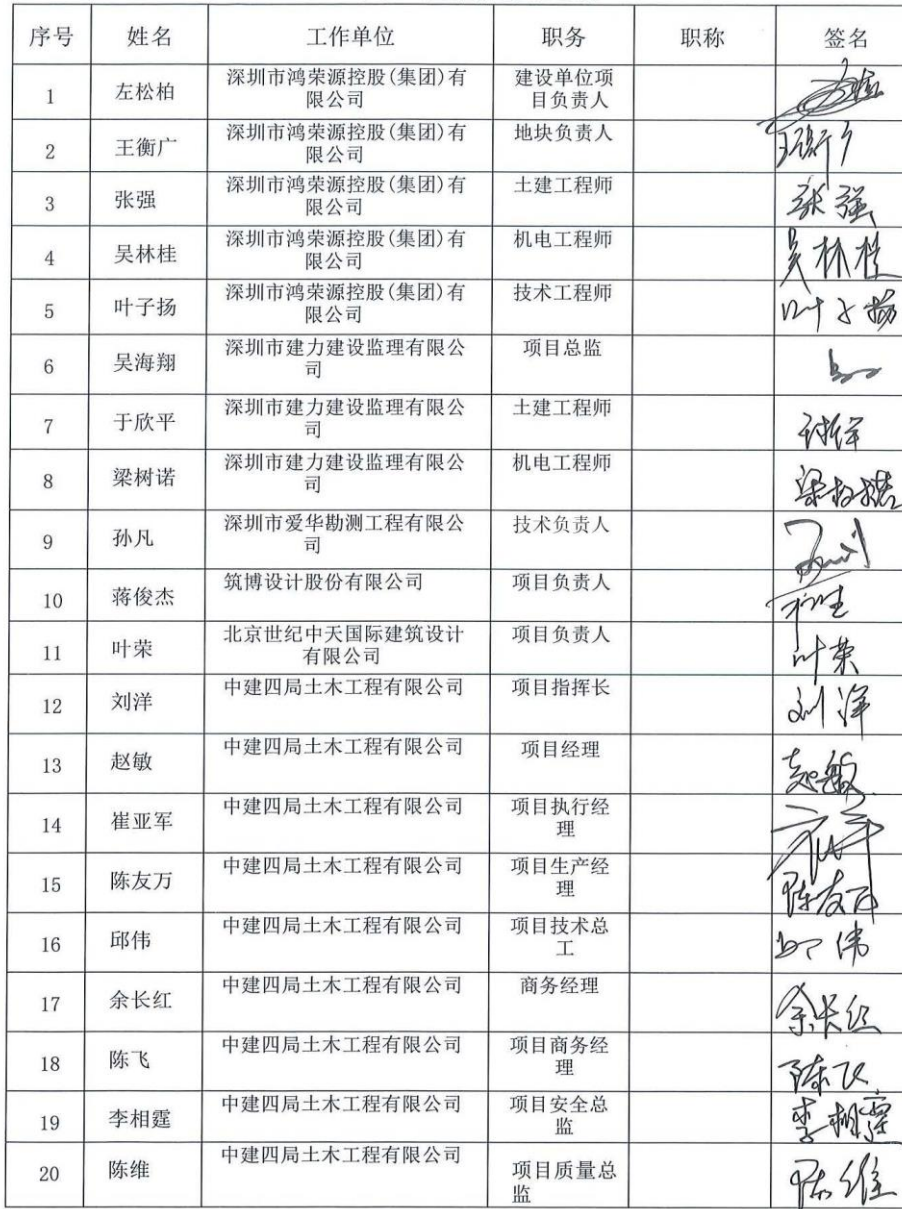 序号 姓名 工作单位 职务 职称 签名
1 左松柏 深圳市鸿荣源控股(集团)有限公司 建设单位项目负责人
2 王衡广 深圳市鸿荣源控股(集团)有限公司 地块负责人 王衡广
3 张强 深圳市鸿荣源控股(集团)有限公司 土建工程师 张强
4 吴林桂 深圳市鸿荣源控股(集团)有限公司 机电工程师 吴林桂
5 叶子扬 深圳市鸿荣源控股(集团)有限公司 技术工程师 叶子扬
6 吴海翔 深圳市建力建设监理有限公司 项目总监
7 于欣平 深圳市建力建设监理有限公司 土建工程师
8 梁树诺 深圳市建力建设监理有限公司 机电工程师 梁树诺
9 孙凡 深圳市爱华勘测工程有限公司 技术负责人
10 蒋俊杰 筑博设计股份有限公司 项目负责人
11 叶荣 北京世纪中天国际建筑设计有限公司 项目负责人 叶荣
12 刘洋 中建四局土木工程有限公司 项目指挥长 刘洋
13 赵敏 中建四局土木工程有限公司 项目经理 赵敏
14 崔亚军 中建四局土木工程有限公司 项目执行经理
15 陈友万 中建四局土木工程有限公司 项目生产经理 陈友万
16 邱伟 中建四局土木工程有限公司 项目技术总工 邱伟
17 余长红 中建四局土木工程有限公司 商务经理 余长红
18 陈飞 中建四局土木工程有限公司 项目商务经理 陈飞
19 李相霆 中建四局土木工程有限公司 项目安全总监 李相霆
20 陈维 中建四局土木工程有限公司 项目质量总监 陈维